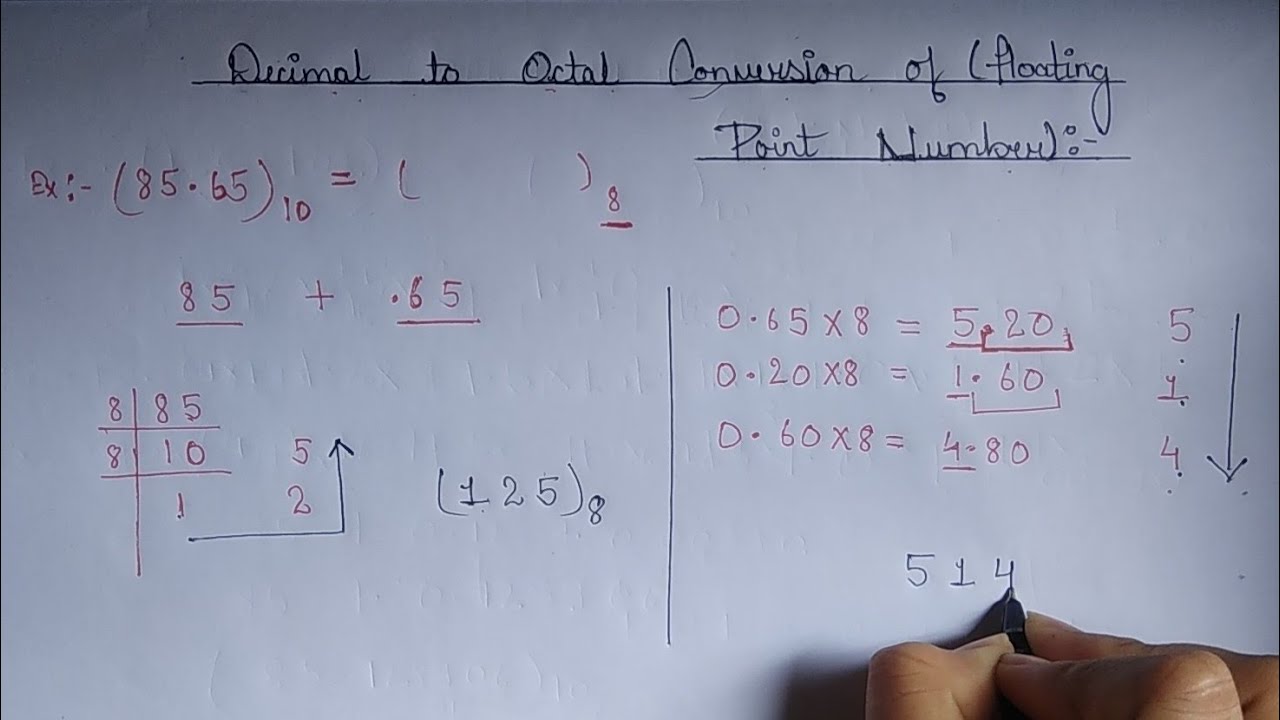 Decimal to Octal Conversion of (floating
Point Number):-
Ex:- (85.65)₁₀ = ( )₈
85 + .65
8 | 85
8 | 10 5
1 2
(125)₈
0.65×8 = 5.20 5
0.20×8 = 1.60 1
0.60×8 = 4.80 4
514